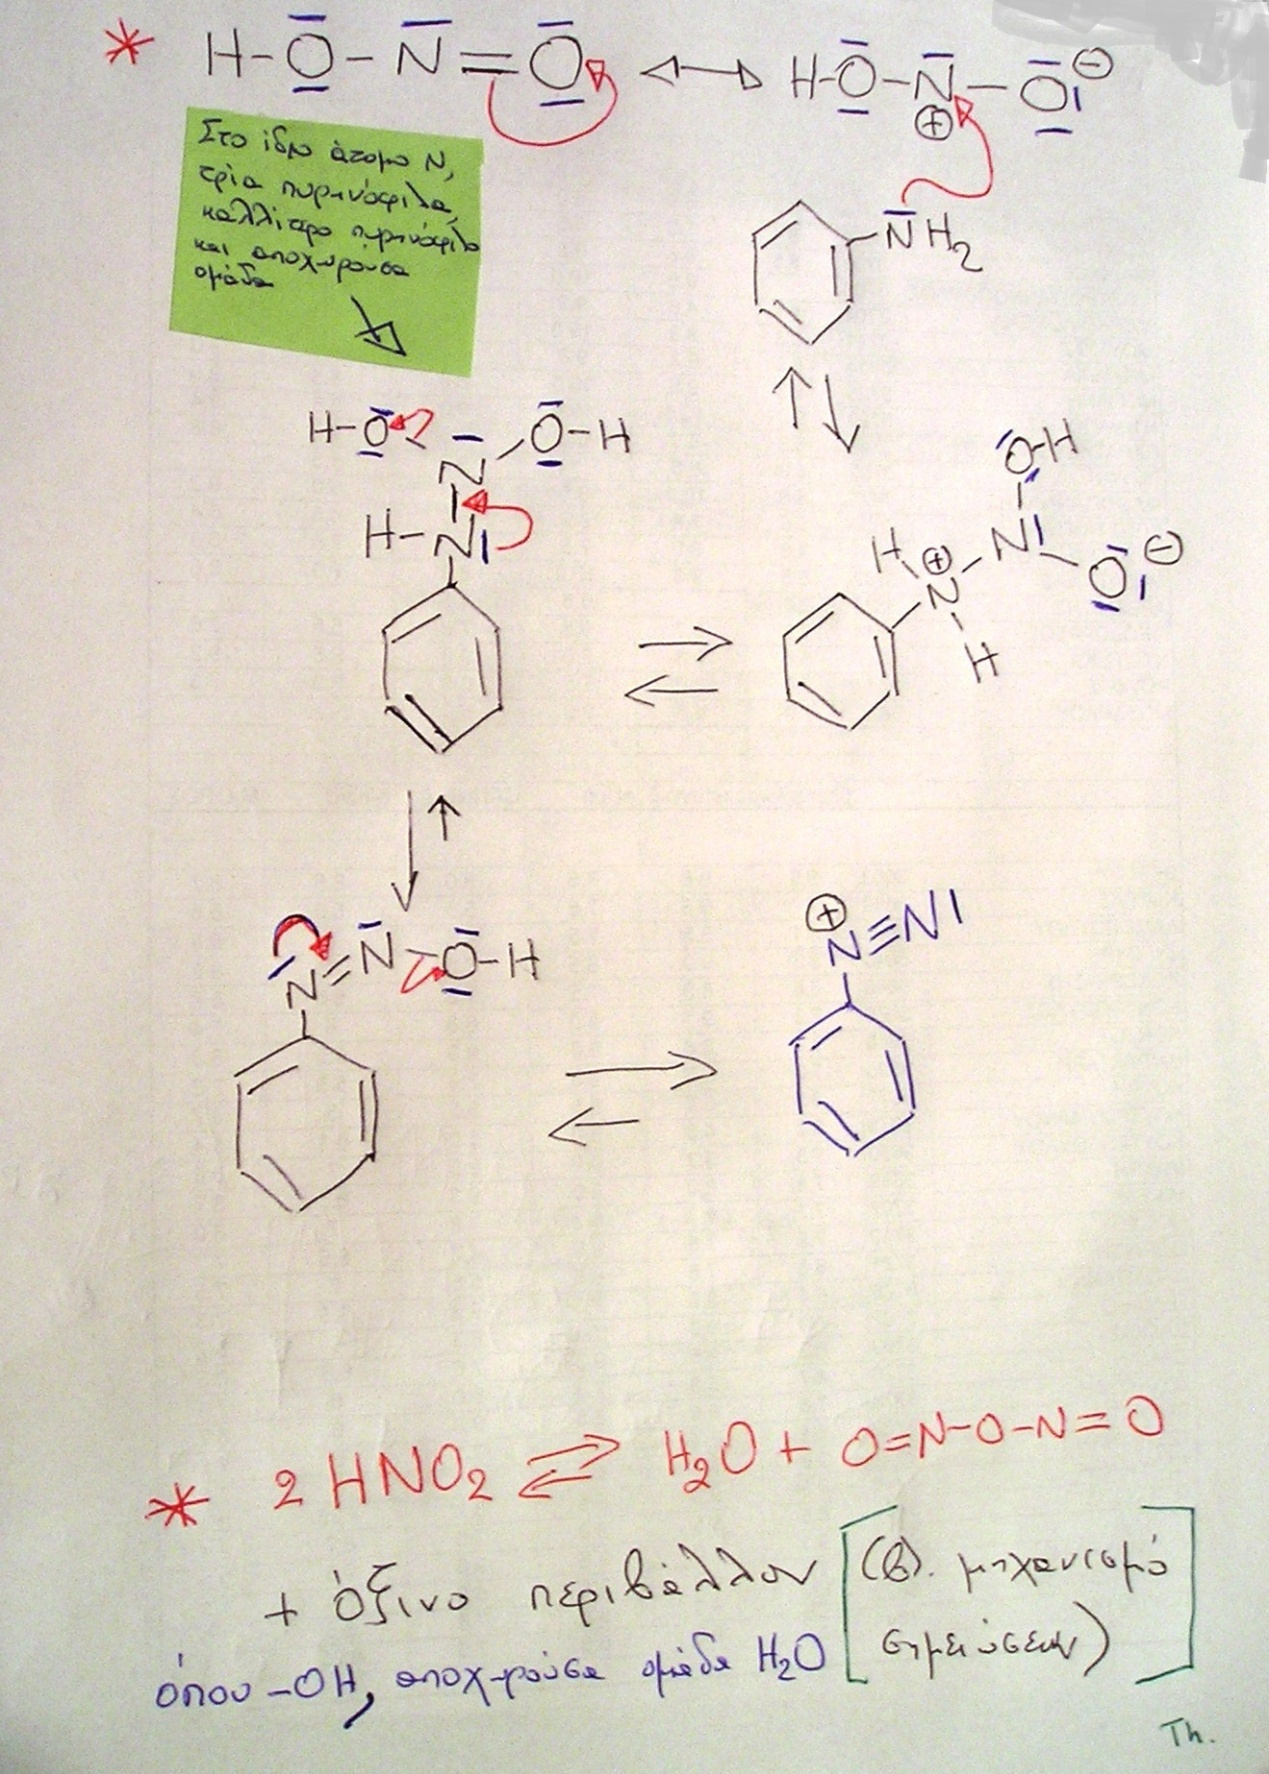 * H-O-N=O ↔ H-O-N-O ⊖
⊕
Στο ίδιο άτομο N,
τρία πυρηνόφιλα,
καλλίτερο πυρηνόφιλο
και αποχωρούσα
ομάδα
NH2
H-O O-H
N
H-N
O-H
N
H ⊕ O ⊖
N
H
N=N-O-H
⊕
N≡N
* 2 HNO2 ⇌ H2O + O=N-O-N=O
+ όξινο περιβάλλον [(β). μηχανισμό
σημειώσεων)]
όπου -OH, αποχωρούσα ομάδα H2O
Th.